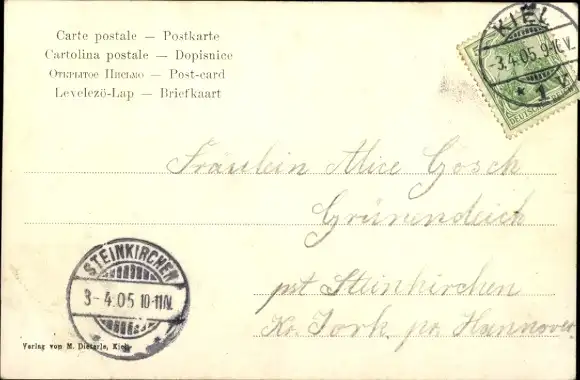 Carte postale — Postkarte
Cartolina postale — Dopisnice
Открытое Письмо — Post-card
Levelezö-Lap — Briefkaart
KIEL
-3.4.05.9-10.V.
* 1 v
DEUTSCHES REICH
Fräulein Alice Gosch
Grünendeich
pst Steinkirchen
Kr. Jork pr. Hannover
STEINKIRCHEN
3-4.05 10-11N.
Verlag von M. Dieterle, Kiel.